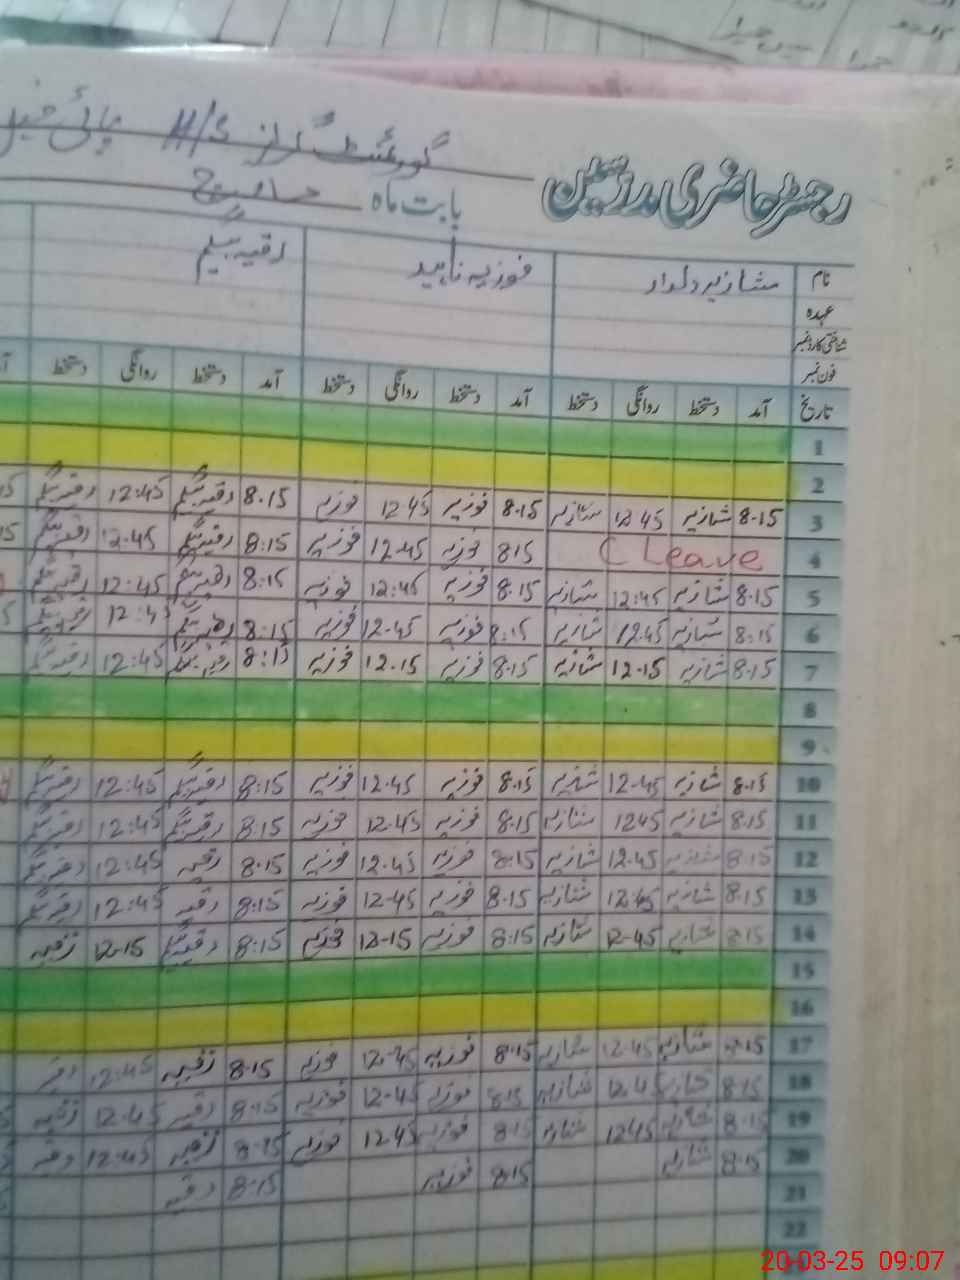 رجسٹر حاضری مدرسین گورنمنٹ گرلز H/S
بابت ماہ مارچ
نام شازیہ دلدار فوزیہ ناہید رقیہ بیگم
عہدہ
شناختی کارڈ نمبر
فون نمبر
تاریخ آمد دستخط روانگی دستخط آمد دستخط روانگی دستخط آمد دستخط روانگی دستخط
1
2
3 8.15 شازیہ 12 45 شازیہ 8.15 فوزیہ 12 45 فوزیہ 8.15 رقیہ بیگم 12:45 رقیہ بیگم
4 C Leave 8 15 فوزیہ 12.45 فوزیہ 8:15 رقیہ بیگم 12.45 رقیہ بیگم
5 8.15 شازیہ 12:45 شازیہ 8.15 فوزیہ 12:45 فوزیہ 8:15 رقیہ بیگم 12:45 رقیہ بیگم
6 8:15 شازیہ 12.45 شازیہ 8:15 فوزیہ 12.45 فوزیہ 8:15 رقیہ بیگم 12:45 رقیہ بیگم
7 8.15 شازیہ 12.15 شازیہ 8.15 فوزیہ 12.15 فوزیہ 8:15 رقیہ بیگم 12:45 رقیہ بیگم
8
9
10 8.15 شازیہ 12.45 شازیہ 8.15 فوزیہ 12.45 فوزیہ 8:15 رقیہ بیگم 12:45 رقیہ بیگم
11 8.15 شازیہ 12 45 شازیہ 8.15 فوزیہ 12.45 فوزیہ 8.15 رقیہ بیگم 12:45 رقیہ بیگم
12 8.15 شازیہ 12.45 شازیہ 8:15 فوزیہ 12.45 فوزیہ 8.15 رقیہ 12:45 رقیہ بیگم
13 8.15 شازیہ 12.45 شازیہ 8.15 فوزیہ 12.45 فوزیہ 8:15 رقیہ 12:45 رقیہ بیگم
14 8.15 شازیہ 12-45 شازیہ 8:15 فوزیہ 12-15 فوزیہ 8:15 رقیہ بیگم 12-15 رقیہ
15
16
17 8.15 شازیہ 12.45 شازیہ 8.15 فوزیہ 12.45 فوزیہ 8.15 رقیہ 12:45 رقیہ
18 8.15 شازیہ 12.45 شازیہ 8.15 فوزیہ 12.45 فوزیہ 8.15 رقیہ 12.45 رقیہ
19 8.15 شازیہ 12 45 شازیہ 8.15 فوزیہ 12 45 فوزیہ 8.15 رقیہ 12:45 رقیہ
20 8.15 شازیہ 8.15 فوزیہ 8.15 رقیہ
21
22
20-03-25 09:07